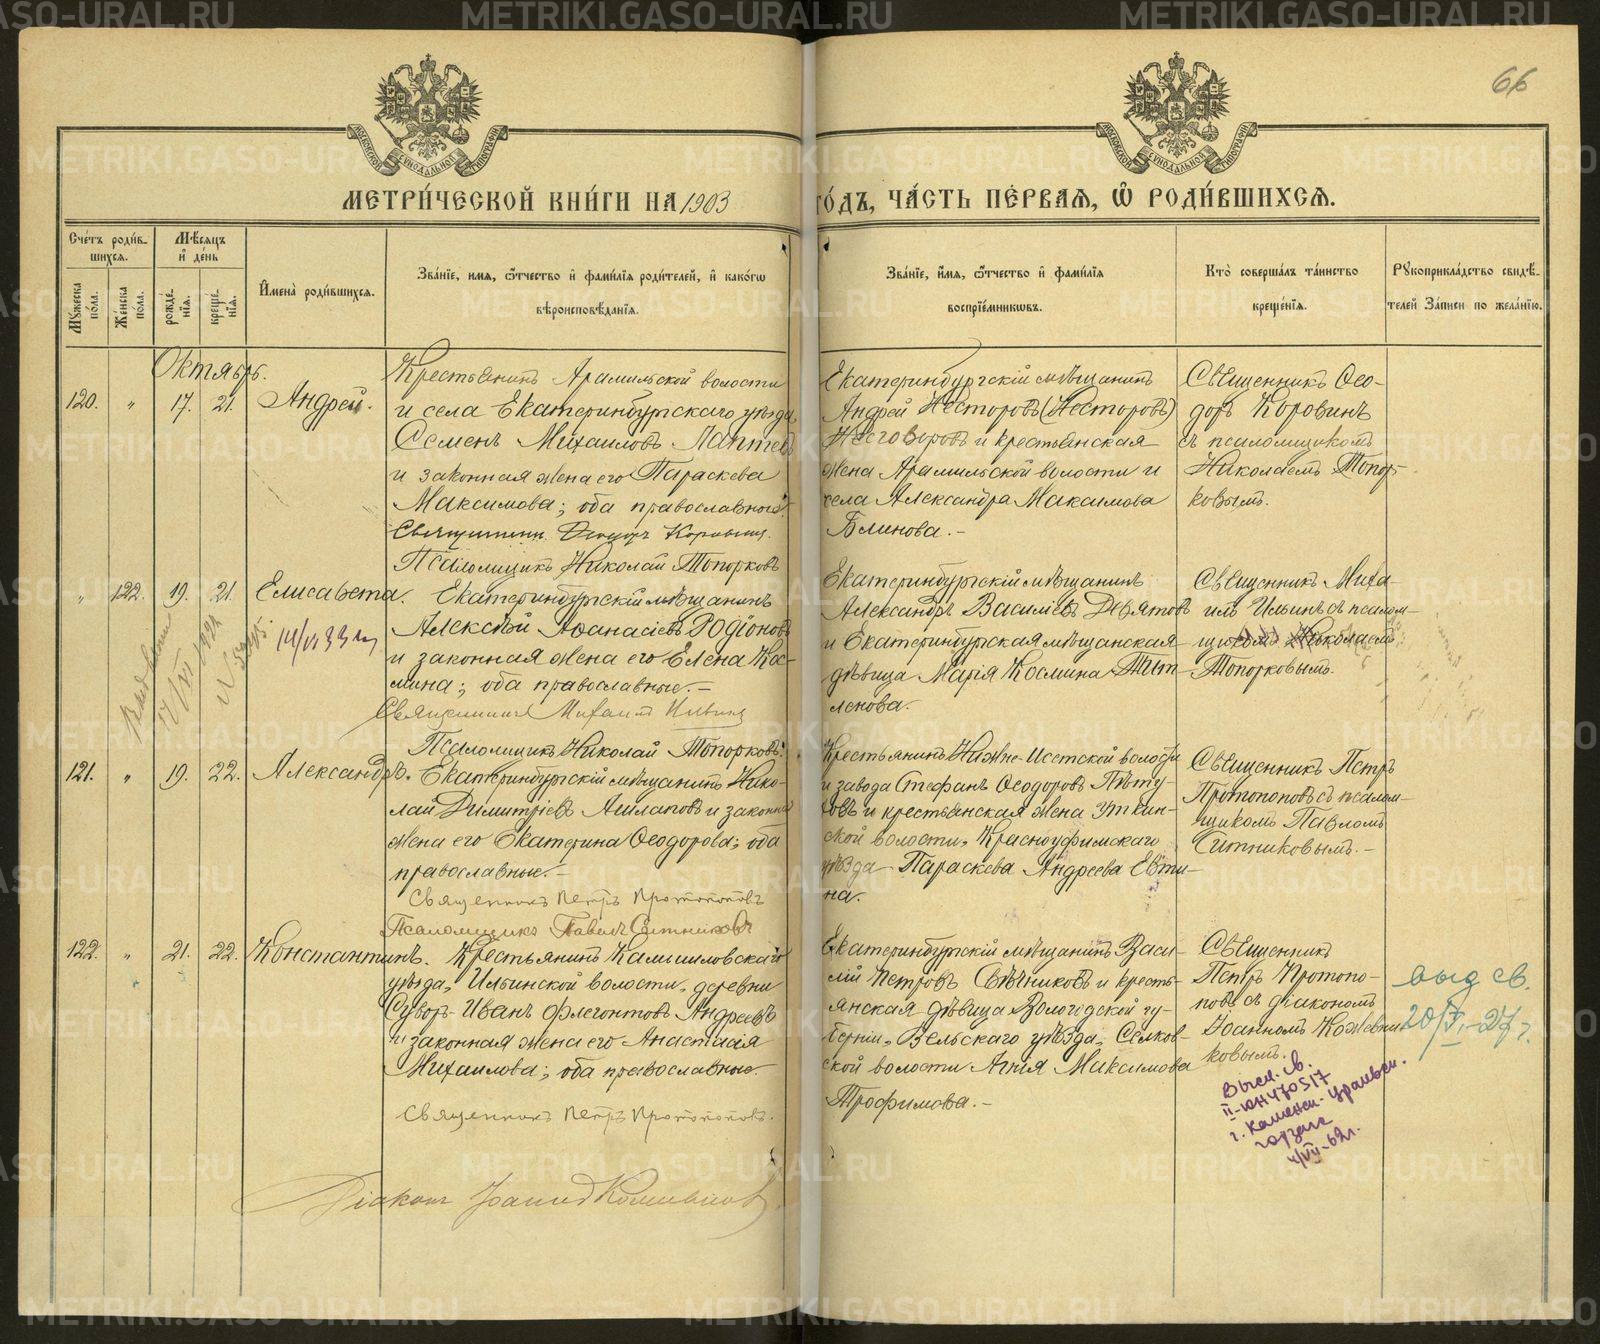 66
МЕТРИ́ЧЕСКОЙ КНИ́ГИ НА 1903 ГО́ДЪ, ЧА́СТЬ ПЕ́РВАѦ, Ѡ҆ РОДИ́ВШИХСѦ.
Сче́тъ роди́вшихсѧ.
Мꙋ́жеска по́ла.
Же́нска по́ла.
Мѣ́сѧцъ и҆ де́нь
рожде́нїѧ.
креще́нїѧ.
И҆мена̀ роди́вшихсѧ.
Зва́нїе, и҆мѧ, ѻ҆́тчество и҆ фами́лїѧ роди́телей, и҆ како́гѡ
вѣроисповѣ́данїѧ.
Зва́нїе, и҆́мѧ, ѻ҆́тчество и҆ фами́лїѧ
воспрїе́мникѡвъ.
Кто̀ соверша́лъ та́инство
креще́нїѧ.
Рꙋкоприкла́дство свидѣ́-
телей За́писи по жела́нїю.
Октябрь.
120. „ 17. 21. Андрей.
Крестьянинъ Арамильской волости
и села Екатеринбургскаго уѣзда
Семенъ Михаиловъ Лаптевъ
и законная жена его Параскева
Максимова; оба православные.
Священник Феодоръ Коровинъ.
Псаломщикъ Николай Топорковъ
Екатеринбургскій мѣщанинъ
Андрей Несторовъ (Несторовъ)
Несговоровъ и крестьянская
жена Арамильской волости и
села Александра Максимова
Блинова. -
Священник Ѳео-
доръ Коровинъ
съ псаломщикомъ
Николаемъ Топор-
ковымъ.
„ 122. 19. 21. Елисавета.
Екатеринбургскій мѣщанинъ
Алексѣй Аѳанасіевъ Родіоновъ
и законная жена его Елена Кос-
мина; оба православные. -
Священникъ Михаилъ Ильинъ
Псаломщикъ Николай Топорковъ.
Екатеринбургскій мѣщанинъ
Александръ Васильевъ Девятовъ
и Екатеринбургская мѣщанская
дѣвица Марія Космина Тит-
ленова.
Священникъ Миха-
илъ Ильинъ съ псалом-
щикомъ Николаемъ
Топорковымъ.
121. „ 19. 22. Александръ.
Екатеринбургскій мѣщанинъ Нико-
лай Димитріевъ Ашлаповъ и законная
жена его Екатерина Ѳеодорова; оба
православные. -
Священникъ Петръ Протопоповъ
Псаломщикъ Павелъ Ситниковъ
Крестьянинъ Нижне-Исетской волости
и завода Стефанъ Ѳеодоровъ Пѣту-
ховъ и крестьянская жена Уткин-
ской волости, Красноуфимскаго
уѣзда Параскева Андреева Евти-
на.
Священникъ Петръ
Протопоповъ съ псалом-
щикомъ Павломъ
Ситниковымъ. -
122. „ 21. 22. Константинъ.
Крестьянинъ Камышловскаго
уѣзда, Ильинской волости, деревни
Суворъ Иванъ Флегонтовъ Андреевъ
и законная жена его Анастасія
Михаилова; оба православные.
Священникъ Петръ Протопоповъ.
Діаконъ Іоаннъ Кожевниковъ
Екатеринбургскій мѣщанинъ Васи-
лій Петровъ Свѣчниковъ и кресть-
янская дѣвица Вологодской гу-
берніи, Вельскаго уѣзда,
ской волости Агнія Максимова
Трофимова. -
Священникъ
Петръ Протопо-
повъ съ діакономъ
Іоанномъ Кожевни-
ковымъ.
выд св.
20/V - 27 г.
Высл. св.
II-ЮН 470517
г. Каменск-Уральск.
горзагс
4/VII-62г.